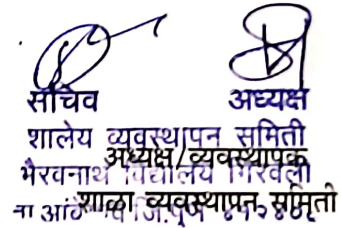 सचिव अध्यक्ष
शालेय व्यवस्थापन समिती
अध्यक्ष/व्यवस्थापक
भैरवनाथ विद्यालय गिरवली
शाळा व्यवस्थापन समिती